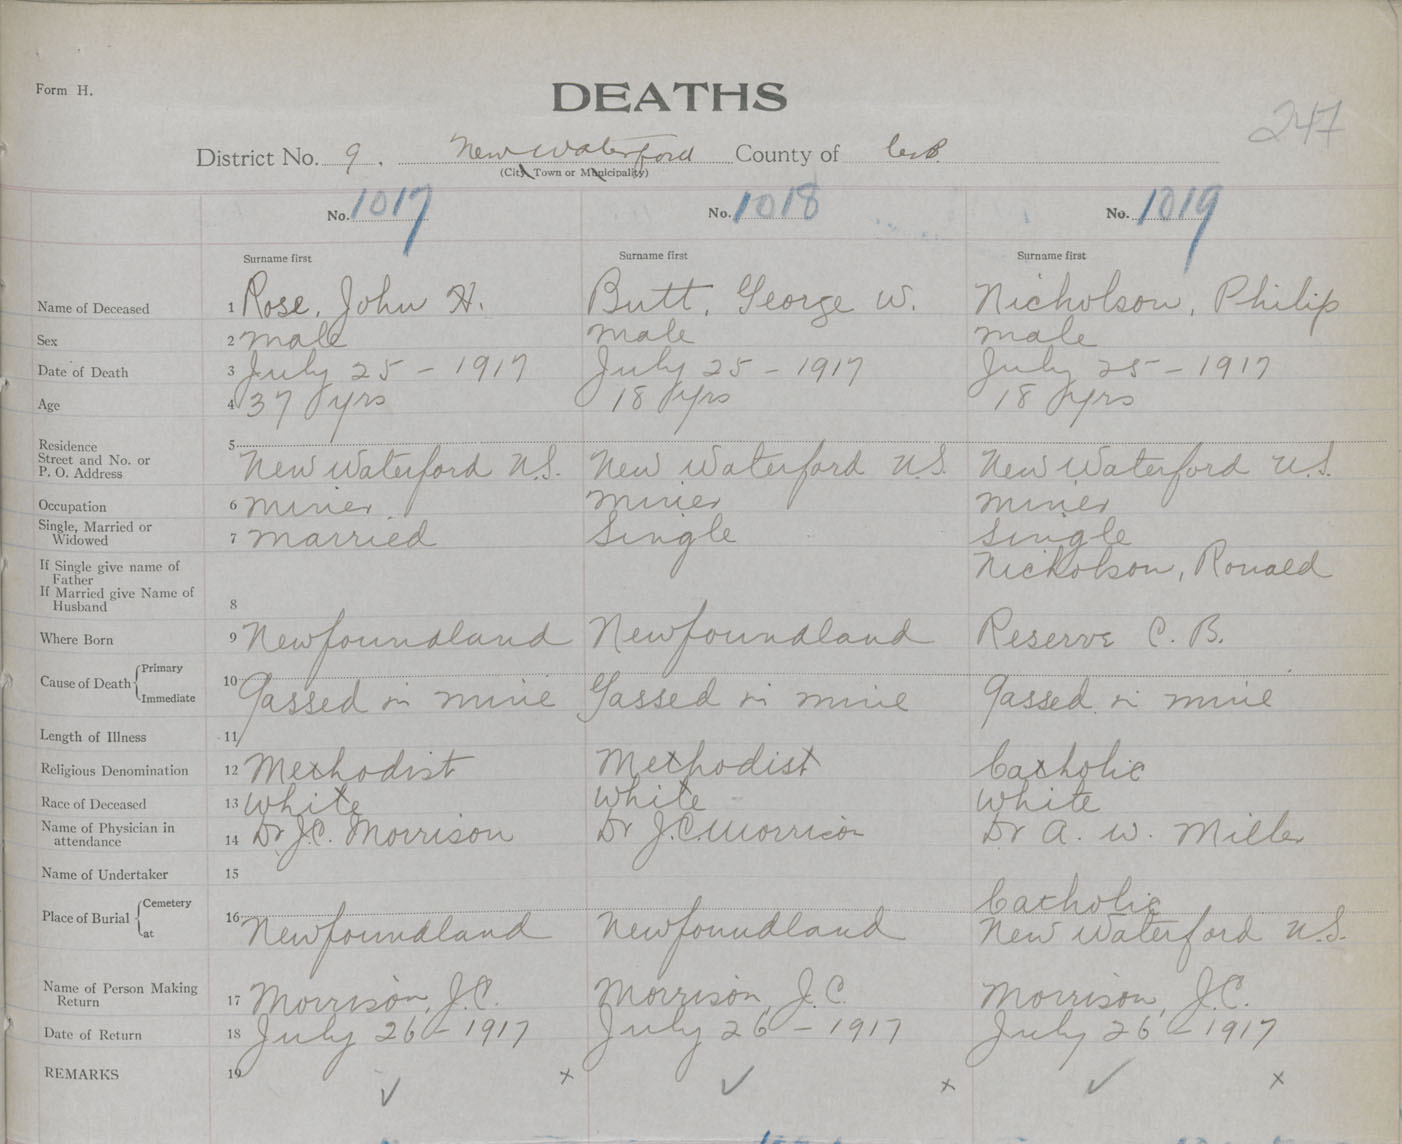 Form H.
DEATHS
247
District No. 9. New Waterford County of C.B.
(City, Town or Municipality)
No. 1017 No. 1018 No. 1019
Surname first Surname first Surname first
Name of Deceased 1 Rose, John H. Butt, George W. Nicholson, Philip
Sex 2 male male male
Date of Death 3 July 25 - 1917 July 25 - 1917 July 25 - 1917
Age 4 37 yrs 18 yrs 18 yrs
Residence 5
Street and No. or
P. O. Address New Waterford N.S. New Waterford N.S. New Waterford N.S.
Occupation 6 miner miner miner
Single, Married or
Widowed 7 married Single Single
If Single give name of
Father Nickolson, Ronald
If Married give Name of
Husband 8
Where Born 9 Newfoundland Newfoundland Reserve C. B.
Cause of Death Primary 10
Immediate Gassed in mine Gassed in mine Gassed in mine
Length of Illness 11
Religious Denomination 12 Methodist Methodist Catholic
Race of Deceased 13 White White White
Name of Physician in
attendance 14 Dr J.C. Morrison Dr J.C. Morrison Dr A. W. Miller
Name of Undertaker 15
Place of Burial Cemetery 16 Catholic
at Newfoundland Newfoundland New Waterford N.S.
Name of Person Making
Return 17 Morrison, J.C. Morrison, J.C. Morrison, J.C.
Date of Return 18 July 26 - 1917 July 26 - 1917 July 26 - 1917
REMARKS 19